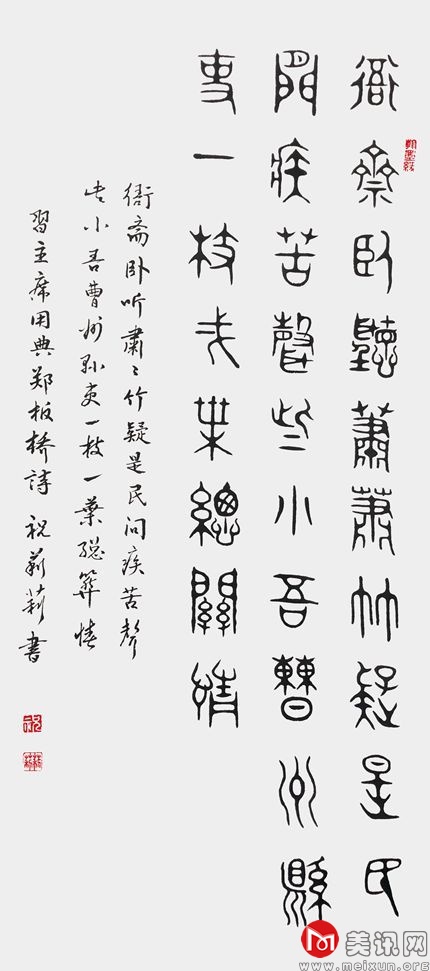 衙齋臥聽蕭蕭竹疑是民
間疾苦聲些小吾曹州縣
吏一枝弌枼總關情
衙斋卧听肃〻竹疑是民间疾苦聲
些小吾曹州縣吏一枝一葉總關情
習主席用典郑板桥詩 祝莉書
美讯网
www.meixun.org